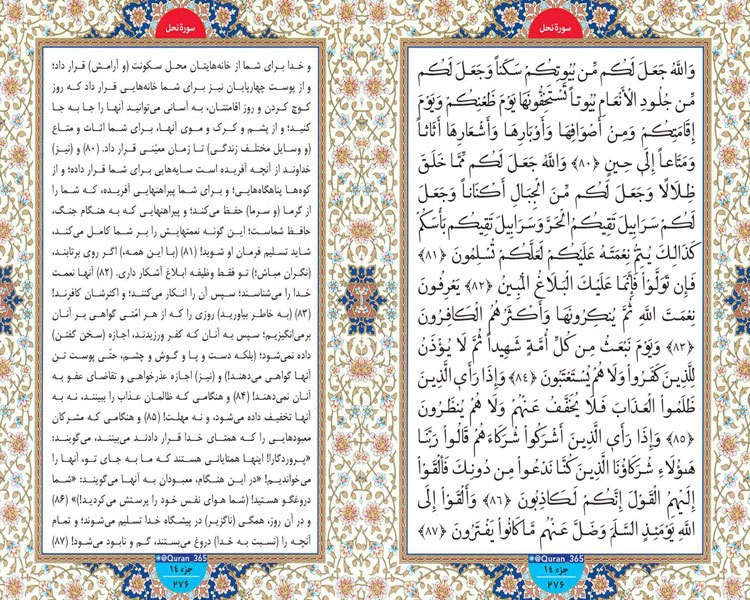 سورهٔ نحل
وَاللَّهُ جَعَلَ لَكُم مِّن بُيُوتِكُمْ سَكَناً وَجَعَلَ لَكُم
مِّن جُلُودِ الْأَنْعَامِ بُيُوتاً تَسْتَخِفُّونَهَا يَوْمَ ظَعْنِكُمْ وَيَوْمَ
إِقَامَتِكُمْ وَمِنْ أَصْوَافِهَا وَأَوْبَارِهَا وَأَشْعَارِهَا أَثَاثاً
وَمَتَاعاً إِلَى حِينٍ ﴿٨٠﴾ وَاللَّهُ جَعَلَ لَكُم مِّمَّا خَلَقَ
ظِلَالًا وَجَعَلَ لَكُم مِّنَ الْجِبَالِ أَكْنَاناً وَجَعَلَ
لَكُمْ سَرَابِيلَ تَقِيكُمُ الْحَرَّ وَسَرَابِيلَ تَقِيكُم بَأْسَكُمْ
كَذَالِكَ يُتِمُّ نِعْمَتَهُ عَلَيْكُمْ لَعَلَّكُمْ تُسْلِمُونَ ﴿٨١﴾
فَإِن تَوَلَّوْا فَإِنَّمَا عَلَيْكَ الْبَلَاغُ الْمُبِينُ ﴿٨٢﴾ يَعْرِفُونَ
نِعْمَتَ اللَّهِ ثُمَّ يُنكِرُونَهَا وَأَكْثَرُهُمُ الْكَافِرُونَ
﴿٨٣﴾ وَيَوْمَ نَبْعَثُ مِن كُلِّ أُمَّةٍ شَهِيداً ثُمَّ لَا يُؤْذَنُ
لِلَّذِينَ كَفَرُوا وَلَا هُمْ يُسْتَعْتَبُونَ ﴿٨٤﴾ وَإِذَا رَأَى الَّذِينَ
ظَلَمُوا الْعَذَابَ فَلَا يُخَفَّفُ عَنْهُمْ وَلَا هُمْ يُنظَرُونَ
﴿٨٥﴾ وَإِذَا رَأَى الَّذِينَ أَشْرَكُوا شُرَكَاءَهُمْ قَالُوا رَبَّنَا
هَؤُلَاءِ شُرَكَاؤُنَا الَّذِينَ كُنَّا نَدْعُوا مِن دُونِكَ فَأَلْقَوْا
إِلَيْهِمُ الْقَوْلَ إِنَّكُمْ لَكَاذِبُونَ ﴿٨٦﴾ وَأَلْقَوْا إِلَى
اللَّهِ يَوْمَئِذٍ السَّلَمَ وَضَلَّ عَنْهُم مَّا كَانُوا يَفْتَرُونَ ﴿٨٧﴾
@Quran_365
جزء ١٤
٢٧٦
سورهٔ نحل
و خدا برای شما از خانه‌هایتان محل سکونت (و آرامش) قرار داد؛
و از پوست چهارپایان نیز برای شما خانه‌هایی قرار داد که روز
کوچ کردن و روز اقامتتان، به آسانی می‌توانید آنها را جا به جا
کنید؛ و از پشم و کرک و موی آنها، برای شما اثاث و متاع
(و وسایل مختلف زندگی) تا زمان معیّنی قرار داد. (۸۰) و (نیز)
خداوند از آنچه آفریده است سایه‌هایی برای شما قرار داده؛ و از
کوه‌ها پناهگاه‌هایی؛ و برای شما پیراهنهایی آفریده، که شما را
از گرما (و سرما) حفظ می‌کند؛ و پیراهنهایی که به هنگام جنگ،
حافظ شماست؛ این گونه نعمتهایش را بر شما کامل می‌کند،
شاید تسلیم فرمان او شوید! (۸۱) (با این همه،) اگر روی برتابند،
(نگران مباش؛) تو فقط وظیفه ابلاغ آشکار داری. (۸۲) آنها نعمت
خدا را می‌شناسند؛ سپس آن را انکار می‌کنند؛ و اکثرشان کافرند!
(۸۳) (به خاطر بیاورید) روزی را که از هر امّتی گواهی بر آنان
برمی‌انگیزیم؛ سپس به آنان که کفر ورزیدند، اجازه (سخن گفتن)
داده نمی‌شود؛ (بلکه دست و پا و گوش و چشم، حتّی پوست تن
آنها گواهی می‌دهند!) و (نیز) اجازه عذرخواهی و تقاضای عفو به
آنان نمی‌دهند! (۸۴) و هنگامی که ظالمان عذاب را ببینند، نه به
آنها تخفیف داده می‌شود، و نه مهلت! (۸۵) و هنگامی که مشرکان
معبودهایی را که همتای خدا قرار دادند می‌بینند، می‌گویند:
«پروردگارا! اینها همتایانی هستند که ما به جای تو، آنها را
می‌خواندیم!» در این هنگام، معبودان به آنها می‌گویند: «شما
دروغگو هستید! (شما هوای نفس خود را پرستش می‌کردید!)» (۸۶)
و در آن روز، همگی (ناگزیر) در پیشگاه خدا تسلیم می‌شوند؛ و تمام
آنچه را (نسبت به خدا) دروغ می‌بستند، گم و نابود می‌شود! (۸۷)
@Quran_365
جزء ١٤
٢٧٦